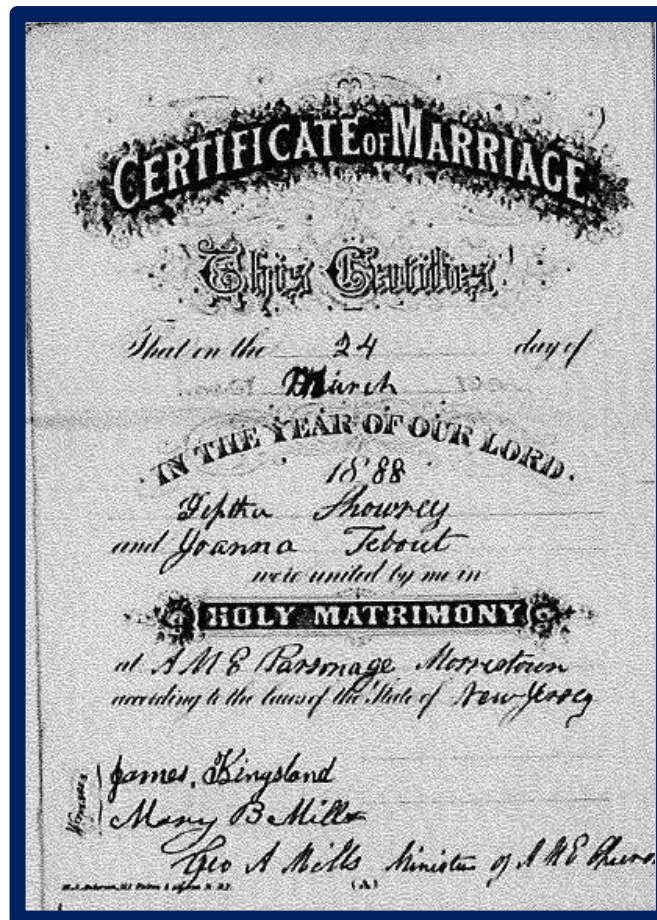 CERTIFICATE OF MARRIAGE
This Certifies
That on the 24 day of
March
IN THE YEAR OF OUR LORD.
1888
Jeptha Showrey
and Joanna Tebout
were united by me in
HOLY MATRIMONY
at A M E Parsonage Morristown
according to the laws of the State of New Jersey
Witnesses
James, Kingsland
Mary B Mills
Geo A Mills Minister of A M E
(A)